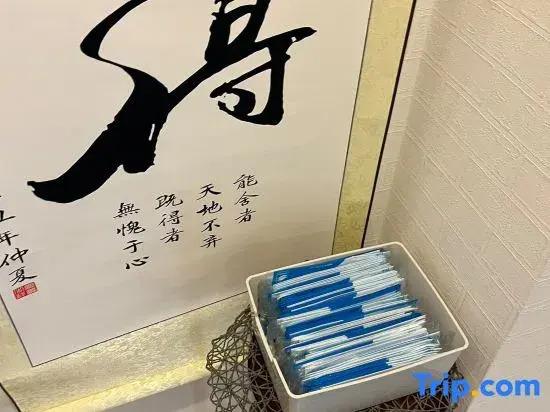 得
能舍者
天地不弃
既得者
無愧于心
年仲夏
Trip.com